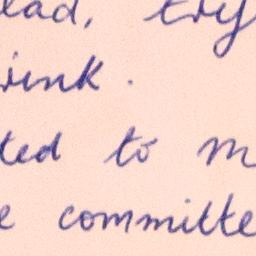 ead, try
rink.
ted to m
e committe